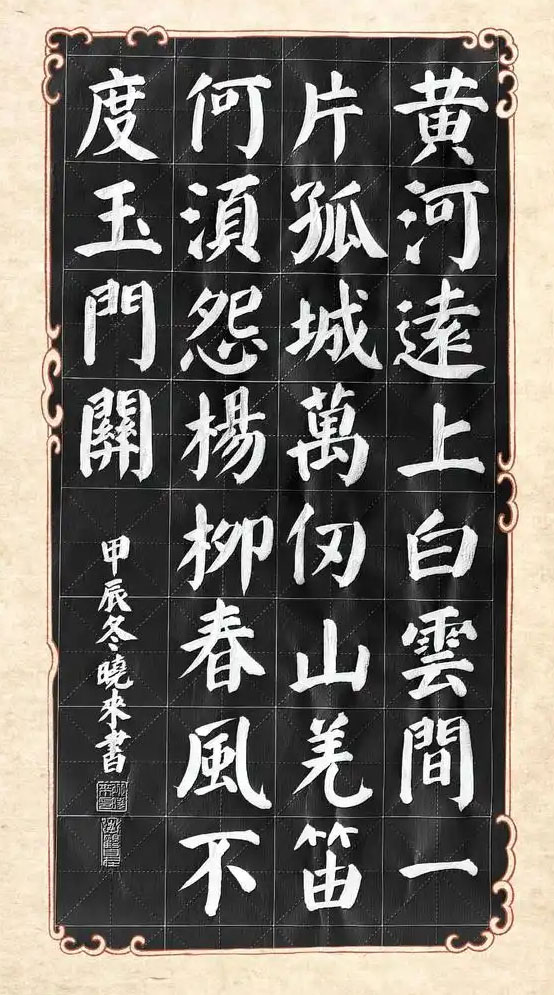 黄河遠上白雲間一
片孤城萬仞山羌笛
何須怨楊柳春風不
度玉門關
甲辰冬曉来書